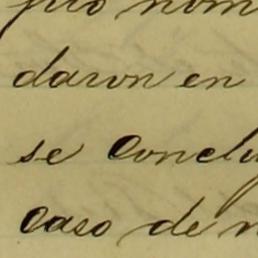 pio nom
daron en
se conclu
caso de n